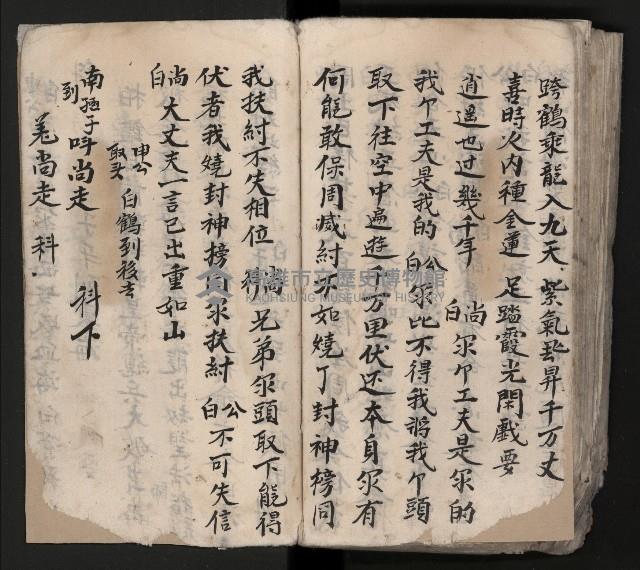 跨鶴乘龍入九天 紫氣騰昇千万丈
喜時火內種金蓮 足踏霞光閑戲耍
逍遥也过幾千年 尚白 尔卩工夫是尔的
我卩工夫是我的 公白 尔比不得我 我卩頭
取下往空中遍遊千万里伏还本身尔有
何能敢保周滅紂 不如燒了封神榜同
我扶紂不失相位 尚 兄弟尔頭取下能得
伏者我燒封神榜同尔扶紂 公白 不可失信
尚白 大丈夫一言已出重如山
申公取头 白鶴到後去
南極子到 叫尚走 科下
尚走 科
高雄市立歷史博物館
KAOHSIUNG MUSEUM OF HISTORY